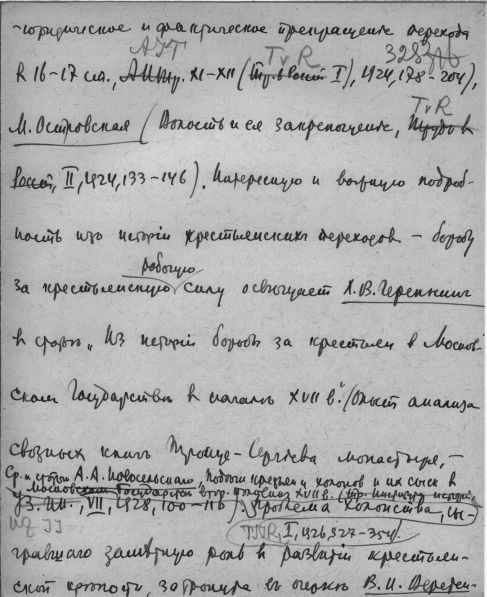 юридическое и фактическое прекращение перехода
AJT TvR
к 16–17 ст., XI–XII ( I), 1924, 178–204),
TvR
М. Островская (Волость и ея закрепощение, Труды в
России, II, 1924, 133–146). Интересную и важную подроб-
ность изъ исторіи крестьянскихъ переходов – борьбу
рабочую
за крестьянскую силу освѣщает Л. В. Черепнин
въ статьѣ „Из исторіи борьбы за крестьян в Москов-
ском Государствѣ в началѣ XVII в." (опыт анализа
свозных книгъ Троице-Сергіева монастыря, –
Ср. и статью А. А. Новосельскаго, Побѣги крестьян и холопов и их сыск в
Московском Государствѣ втор. половины XVII в. (Тр. Института исторіи,
УЗ. И.И., VII, 1928, 100–116) Проблема холопства, сы-
UZ II TIIR, I, 1926, 327–354).
гравшаго замѣтную роль в развитіи крестьян-
ской крѣпости, затронута въ очеркѣ